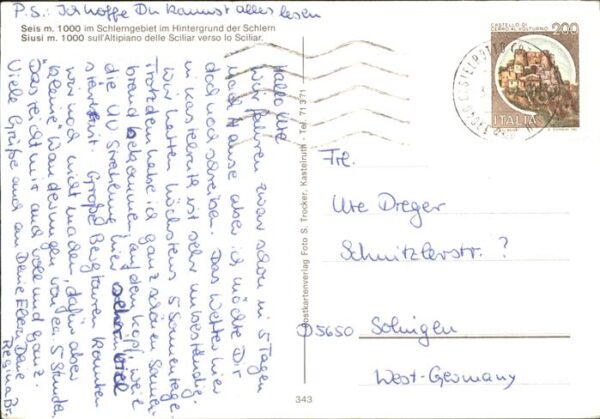 P.S.: Ich hoffe Du kannst alles lesen
Seis m. 1000 im Schlerngebiet im Hintergrund der Schlern
Siusi m. 1000 sull'Altipiano delle Sciliar verso lo Sciliar.
Hallo Ute
Wir fahren zwar schon in 5 Tagen
nach Hause aber ich möchte Dir
doch noch schreiben. Das Wetter hier
in Kastelruth ist sehr unbeständig.
Wir hatten höchstens 5 Sonnentage.
Trotzdem habe ich ganz schönen Sonnen-
brand bekommen, auf dem Kopf, weil
die UV Strahlung hier sehr viel
stärker ist. Große Bergtouren konnten
wir noch nicht machen, dafür aber
"kleine" Wanderungen von ca. 5 Stunden.
Das reicht mir auch voll und ganz.
Viele Grüße auch an Deine Eltern Deine
Regina Br.
Postkartenverlag Foto S. Trocker, Kastelruth - Tel. 71371
343
CASTELLO DI
CERRO AL VOLTURNO
200
ITALIA
Frl.
Ute Dreger
Schnitzlerstr. ?
D 5650 Solingen
West-Germany